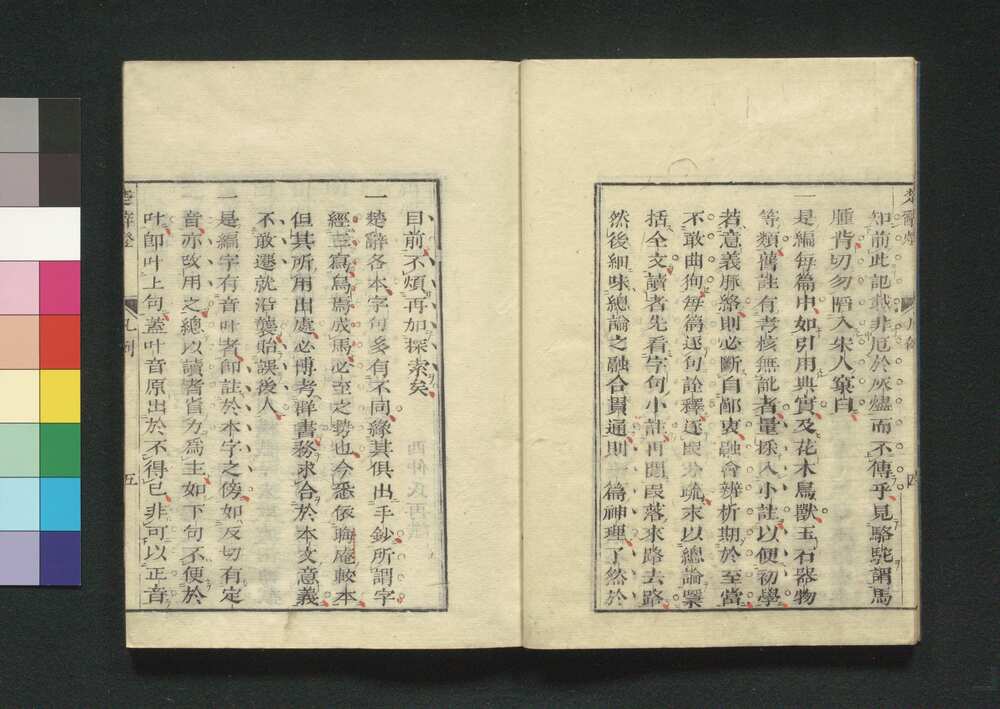 知前此記載非厄於灰燼而不傳乎見駱駝謂馬
腫背切勿陷入朱人窠臼
一是編每篇中如引用典實及花木鳥獸玉石器物
等類舊註有考核無訛者量採入小註以便初學
若意義脈絡則必斷自鄙衷融會辨析期於至當
不敢曲狥每篇逐句詮釋逐段分疏末以總論槩
括全文讀者先看字句小註再閱段落來路去路
然後細味總論之融合貫通則一篇神理了然於
楚辭燈
凡例
四
目前不煩再加探索矣
一楚辭各本字句多有不同緣其俱出手鈔所謂字
經三寫烏焉成馬必至之勢也今悉依晦庵較本
但其所用出處必博考群書務求合於本文意義
不敢遷就沿襲貽誤後人
一是編字有音叶者卽註於本字之傍如反切有定
音亦改用之總以讀者省力為主如下句不便於
叶卽叶上句蓋叶音原出於不得已非可以正音
楚辭燈
凡例
五